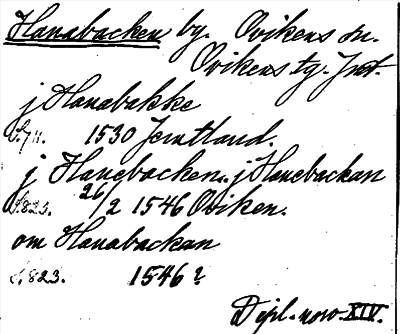 Hanabacken by. Ovikens sn.
Ovikens tg. Jmt.
j Hanabakke
S. 711. 1530 Jemtland.
j Hanebacken. j Hanebackan
S. 823. 26/2 1546 Oviken.
om Hanabackan
S. 823. 1546?
Dipl. norv. XIV.